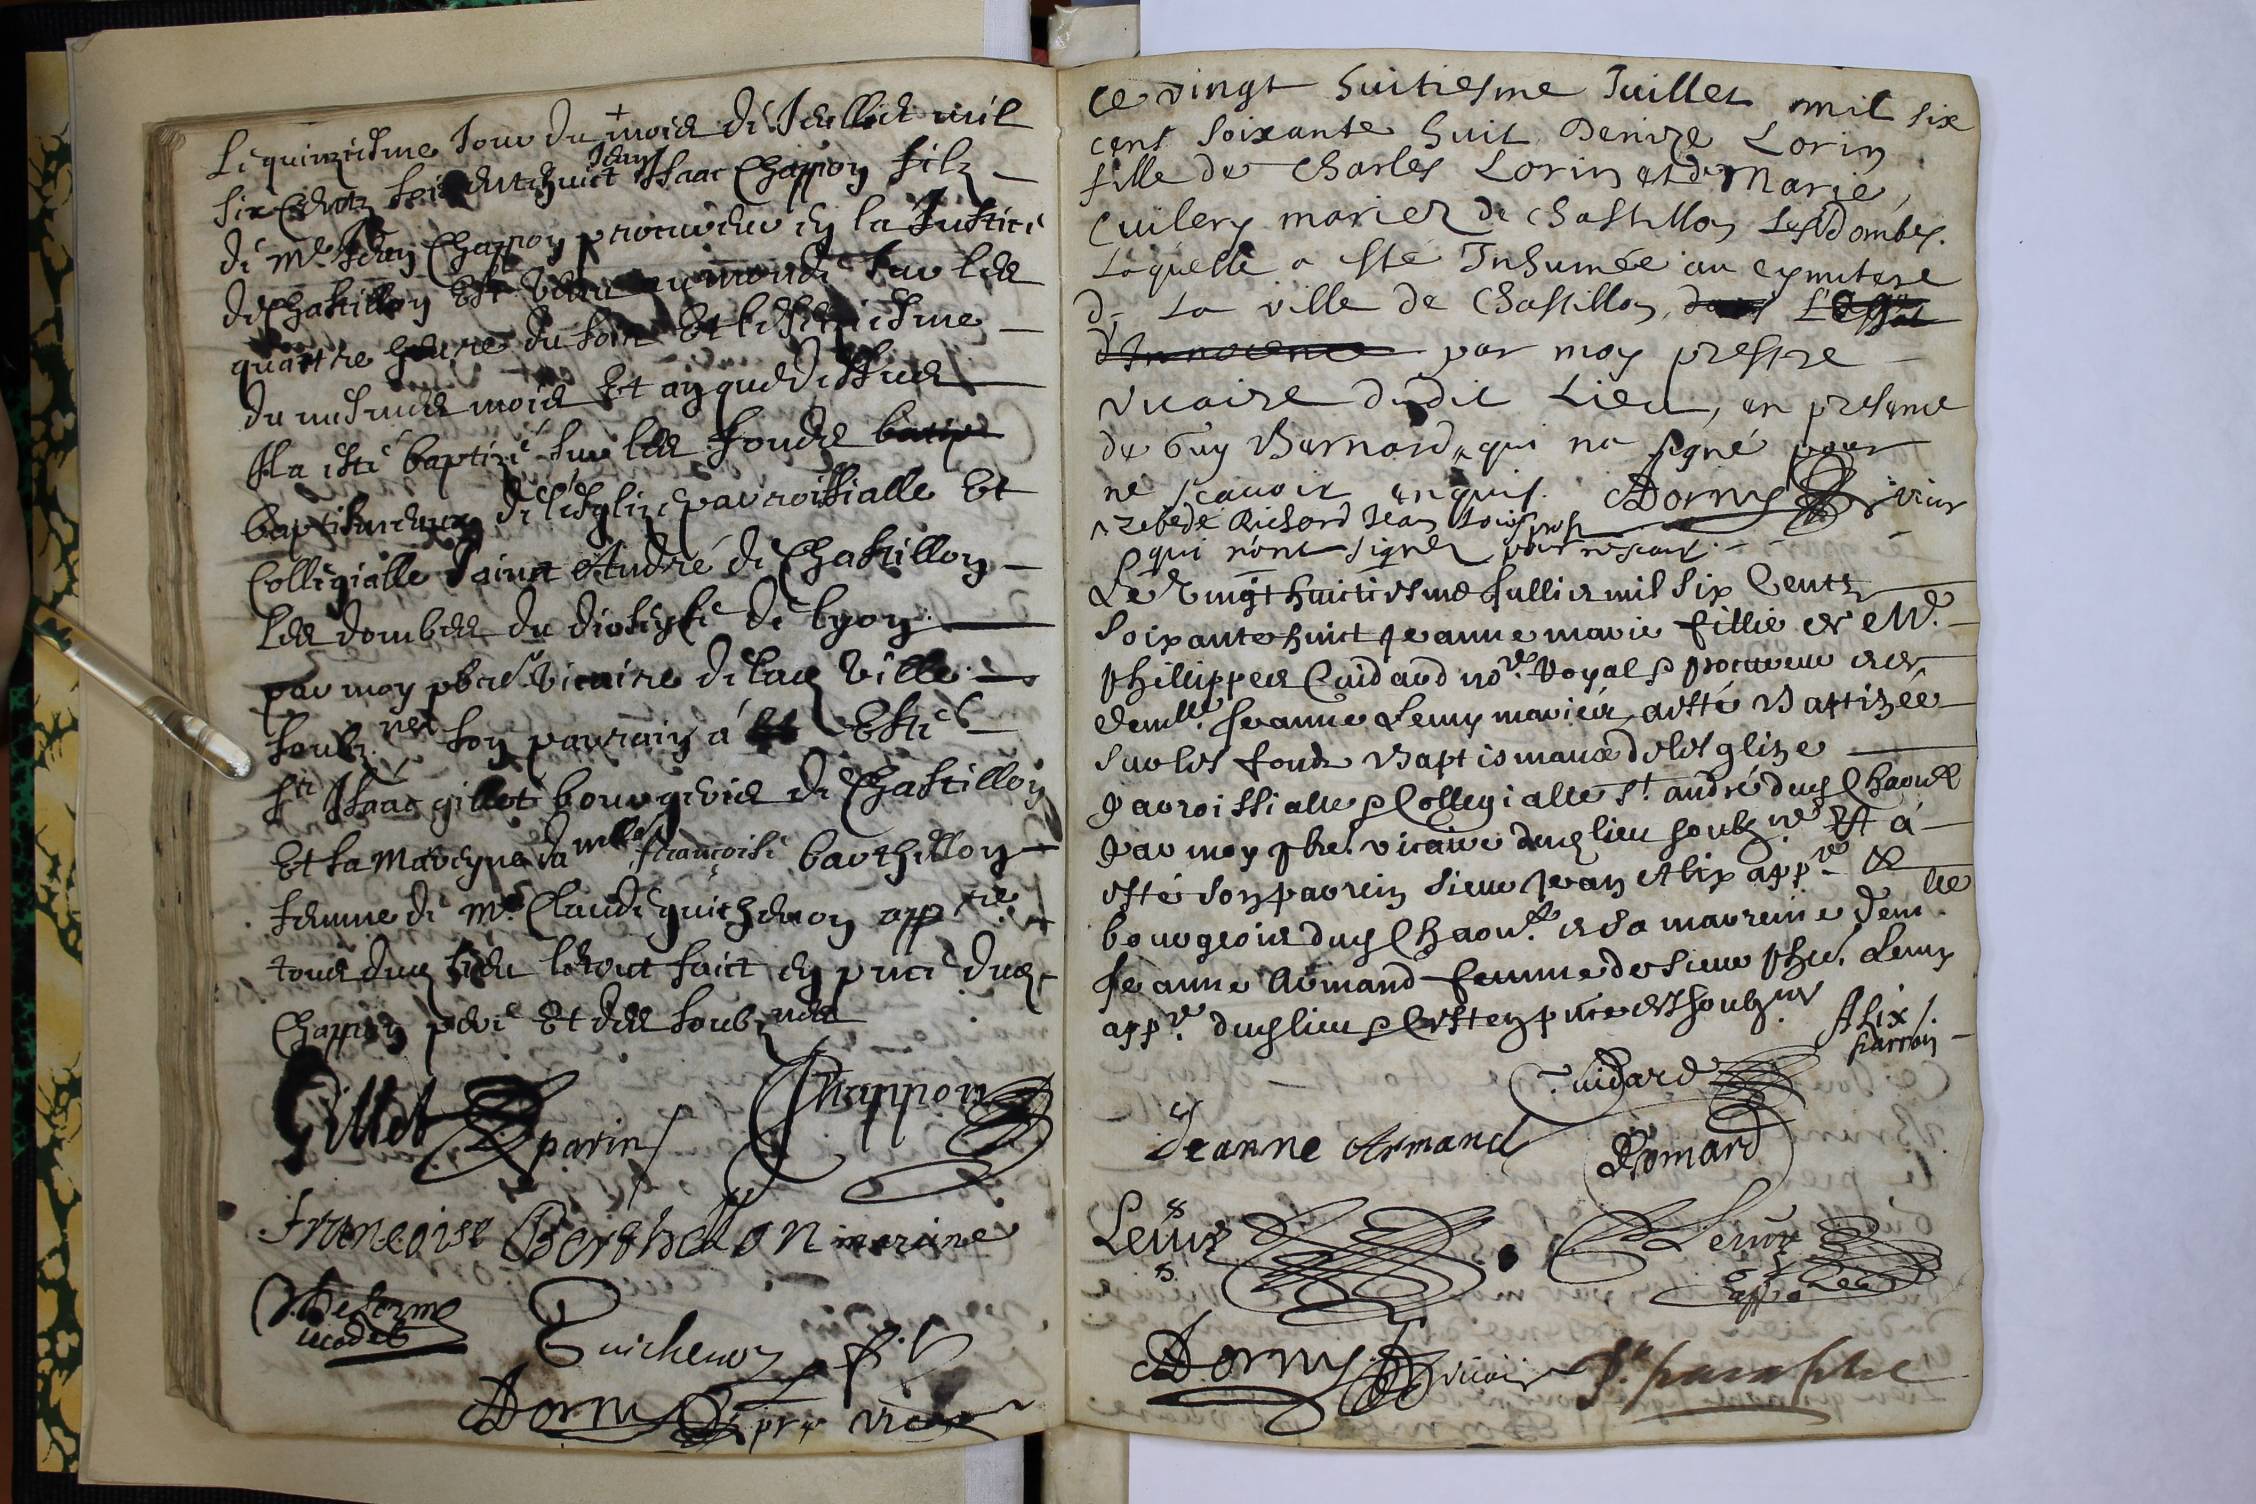 +
Le quinziesme Jour du mois de Juillet mil
Jean
six Centz soixante huict Isaac Chappon filz
de Me Jean Chappon procureur en la Justice
de Chastillon Est venu au monde sur les
quattre heure du soir Et le
du mesme mois Et an que dessus
Il a esté baptizé sur les fondz baptis
baptismeaux de l'esglize parroissialle Et
Collegialle Sainct André de Chastillon
Les dombes du diocese de Lyon
par moy pbre vicaire de lad ville
soubz.né son parrain á Esté
sr Isaac gillet bourgeois de Chastillon
Et sa Mareyne da mlle françoise barthellon
femme de Me Claude guichenon appre
tous dud lieu le tout faict en pnce dud
Chappon pere Et des soubznés
Gillet parin Chappon
Francoise Berthellon marine
Delorme
Guichenon
ADorny pre vicaire
Ce vingt huitiesme Juillet mil six
cent soixante huit Denize Lorin
fille de Charles Lorin et de Marie
Cuilery mariez de Chastillon Les Dombes.
Laquelle a esté Inhumée au cymitere
de La ville de Chastillon, dans L'Eglise
d'Innocence par moy prestre
vicaire dudit Lieu, en presence
de Guy Bernard, qui na signé pour
ne scavoir enquis. ADorny vicair
Zebedé Richard Jean
qui n'ont signez pour ne scavoir.
Le Vingt huictiesme Jullier mil six Centz
soixante huict Jeanne marie fillie de Me
Phillippes Cuidard nore Royal & procureur et de
demlle Jeanne Lemy mariés, a esté Baptizée
sur les fondz Baptismaux de l'esglize
Parroissialle & Collegialle St. André dud Chaon
Par moy pbre. vicaire dud lieu soubzné Et á
esté son parrein sieur Jean Alix appre &
bourgeois dud Chaon. et sa marreine demlle
Jeanne Armand femme de sieur Lemy
appre dud lieu & Cest en pnce des soubznés
Alix
parrain
Cuidard
Jeanne Armand Bomard
Lemy Lemy
ADorny vicair Sr. paraphe